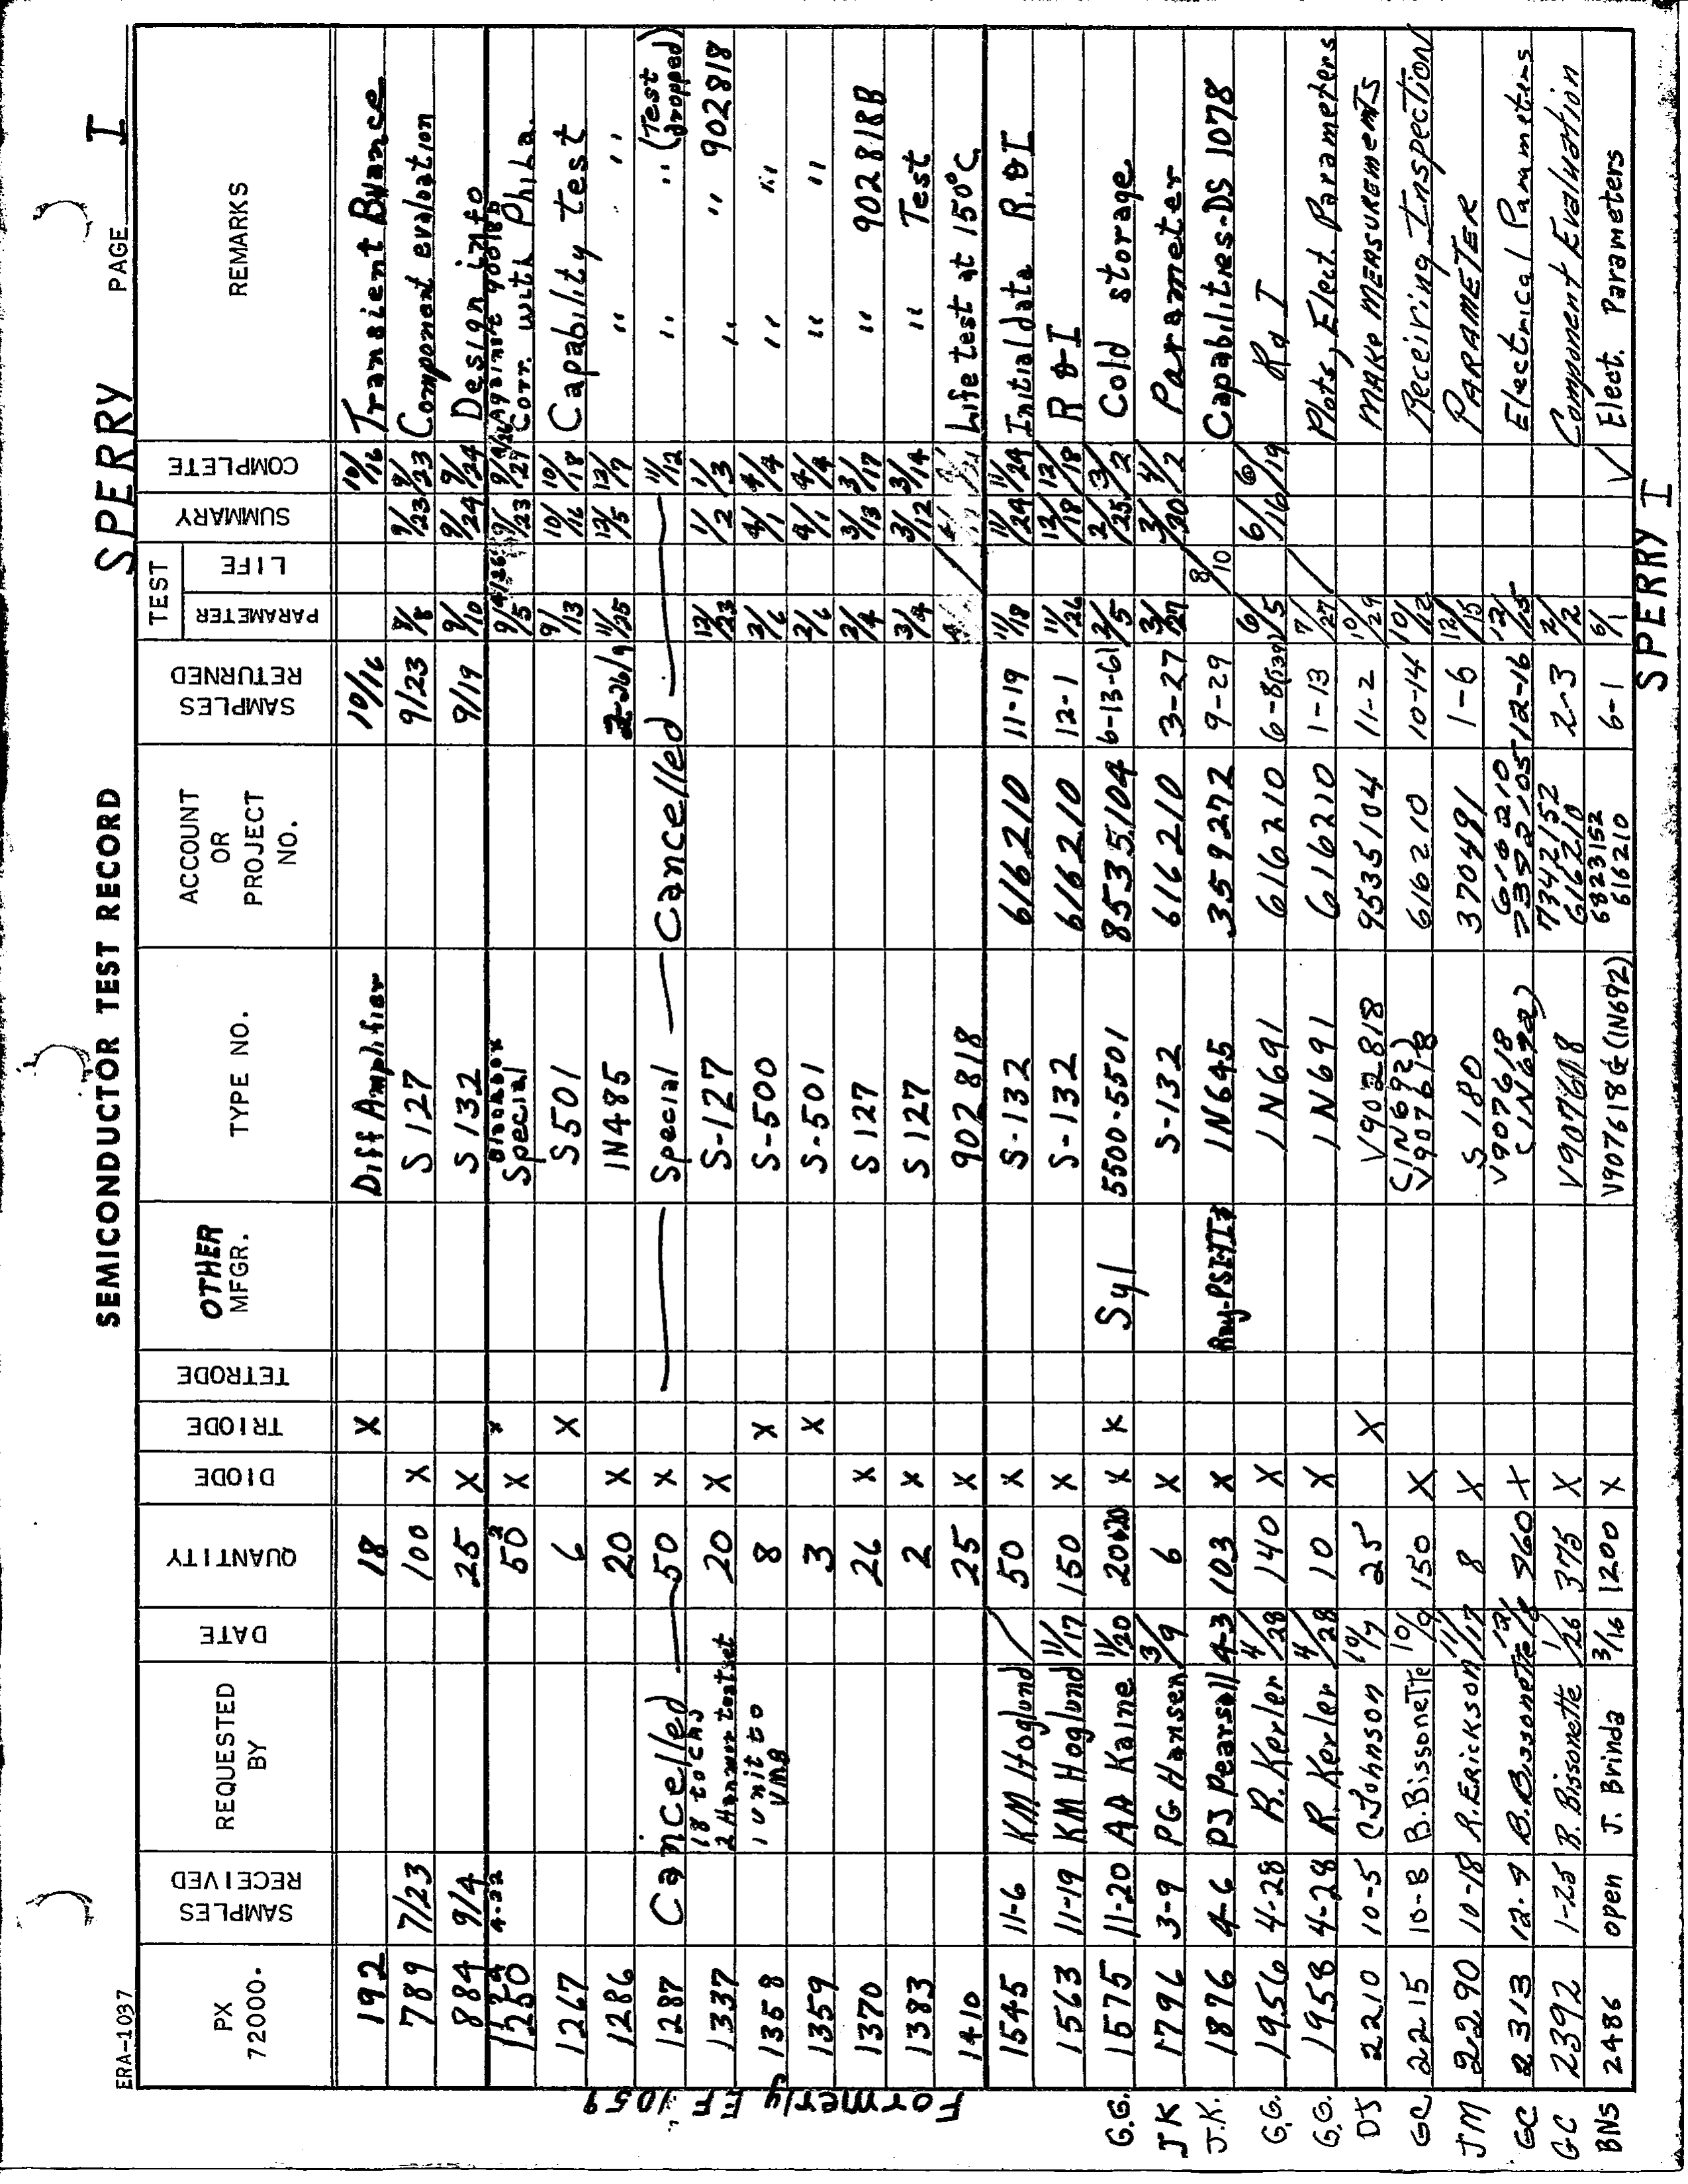 ERA-1037
SEMICONDUCTOR TEST RECORD
SPERRY PAGE I
PX 72000. SAMPLES RECEIVED REQUESTED BY DATE QUANTITY DIODE TRIODE TETRODE OTHER MFGR. TYPE NO. ACCOUNT OR PROJECT NO. SAMPLES RETURNED TEST PARAMETER LIFE SUMMARY COMPLETE REMARKS
192 18 X Diff Amplifier 10/16 10/16 Transient Balance
789 7/23 100 X S 127 9/23 9/23 9/23 Component evaluation
884 9/4 25 X S 132 9/19 9/10 9/24 9/24 Design info
1250 50 X Special 9/5 9/23 9/27 Corr. with Phila.
1267 6 X S501 9/13 10/16 10/18 Capability test
1286 20 X 1N485 11/25 12/5 12/7 " " "
1287 Cancelled 50 X Special Cancelled 11/12 " " (Test dropped)
1337 18 to CHJ 2 Hanner test set 20 X S-127 12/23 1/2 1/3 " " 902818
1358 1 Unit to VMB 8 X S-500 3/6 4/1 4/4 " "
1359 3 X S-501 2/6 4/1 4/4 " "
1370 26 X S 127 3/4 3/13 3/17 " 902818B
1383 2 X S 127 3/4 3/12 3/14 " Test
1410 25 X 902818 Life test at 150°C
1545 11-6 KM Hoglund 50 X S-132 616210 11-19 11/18 11/24 11/24 Initial data R. & I
1563 11-19 KM Hoglund 11/17 150 X S-132 616210 12-1 11/26 12/18 12/18 R & I
G.G. 1575 11-20 AA Kalne 11/20 X X Syl 5500-5501 8535104 6-13-61 2/5 2/25 3/2 Cold storage
JK 1796 3-9 PG Hansen 3/9 6 X S-132 616210 3-27 3/27 3/30 4/2 Parameter
J.K. 1876 4-6 PJ Pearsall 4-3 103 X 1N645 359272 9-29 8/10 Capabilities-DS 1078
G.G. 1956 4-28 R. Kerler 4/28 140 X 1N691 616210 6-8 6/5 6/16 6/19 R & I
G.G. 1958 4-28 R. Kerler 4/28 10 X 1N691 616210 1-13 7/27 Plots, Elect. Parameters
DJ 2210 10-5 C Johnson 10/7 25 X V902818 9535104 11-2 10/29 MAKE MEASUREMENTS
GC 2215 10-8 B. Bissonette 10/9 150 X (1N692) V907618 616210 10-14 10/12 Receiving Inspection
JM 2290 10-18 R. Erickson 11/17 8 X S 180 370491 1-6 12/15 PARAMETER
GC 2313 12-9 B. Bissonette 960 X V907618 (1N692) 616210 7392105 12-16 12/15 Electrical Parameters
GC 2392 1-25 R. Bissonette 1/26 375 X V907618 7342152 616210 2-3 2/2 Component Evaluation
BNS 2486 open J. Brinda 3/16 1200 X V907618 & (1N692) 6823152 616210 6-1 6/1 ✓ Elect. Parameters
Formerly EF 1059
SPERRY I